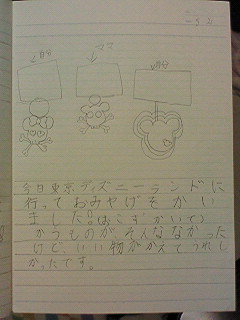 自分
ママ
自分
今日東京ディズニーランドに
行っておみやげをかい
ました。(おこずかいで)
かうものが、そんななかった
けど、いい物がかえてうれし
かったです。